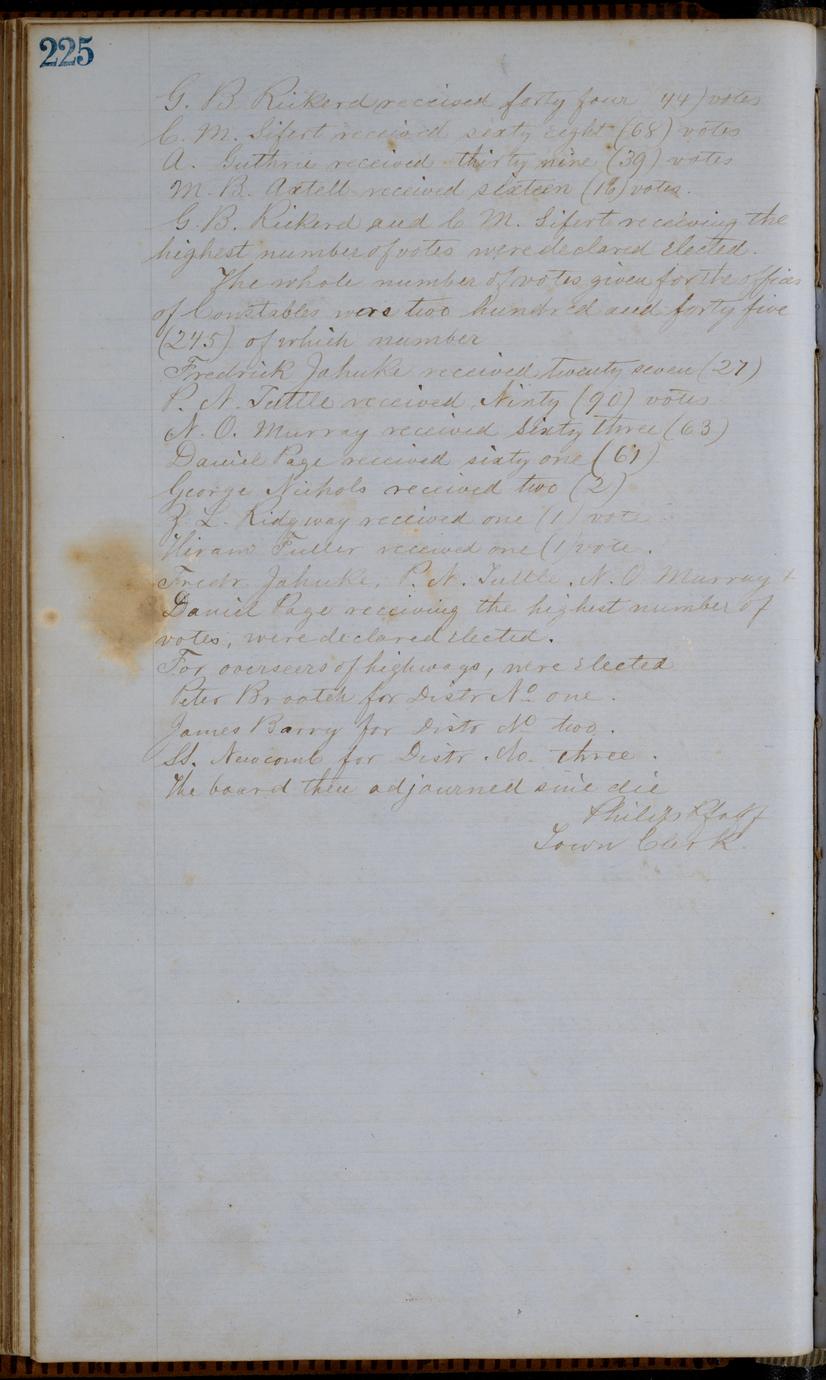 225
G. B. Rickerd received forty four 44) votes
C. M. Sifert received sixty eight (68) votes
A. Guthrie received thirty nine (39) votes
M. B. Axtell received sixteen (16) votes.
G. B. Rickerd and C M. Sifert receiving the
highest number of votes were declared elected.
The whole number of votes given for the offices
of Constables were two hundred and forty five
(245) of which number
Fredrick Jahnke received twenty seven (27)
P. N. Tuttle received Ninty (90) votes
N. O. Murray received Sixty three (63)
Daniel Page received sixty one (61)
George Nichols received two (2)
Z. L. Ridgway received one (1) vote
Hiram Fuller received one (1) vote.
Fredr Jahnke, P. N. Tuttle, N. O Murray +
Daniel Page receiving the highest number of
votes, were declared elected.
For overseers of highways, were elected
Peter Broatch for Distr No one.
James Barry for Distr No two.
Newcomb for Distr. No. three.
The board then adjourned sine die
Philip Pfaff
Town Clerk.